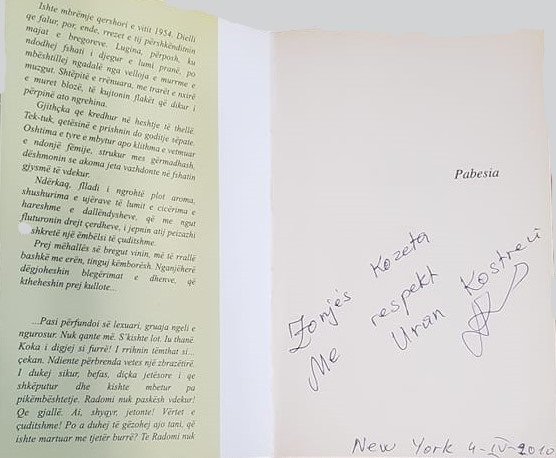 Ishte mbrëmje qershori e vitit 1954. Dielli
qe falur, por, ende, rrezet e tij përshkënditnin
majat e bregoreve. Lugina, përposh, ku
ndodhej fshati i djegur e lumi pranë, po
mbështillej ngadalë nga velloja e murrme e
muzgut. Shtëpitë e rrënuara, me trarët e nxirë
e muret blozë, të kujtonin flakët që dikur i
përpinë ato ngrehina.
Gjithçka qe kredhur në heshtje të thellë.
Tek-tuk, qetësinë e prishnin do goditje sëpate.
Oshtima e tyre e mbytur apo klithma e vetmuar
e ndonjë fëmije, strukur mes gërmadhash,
dëshmonin se akoma jeta vazhdonte në fshatin
gjysmë të vdekur.
Ndërkaq, flladi i ngrohtë plot aroma,
shushurima e ujërave të lumit e cicërima e
hareshme e dallëndysheve, që me ngut
fluturonin drejt çerdheve, i jepnin atij peizazhi
shkretë një ëmbëlsi të çuditshme.
Prej mëhallës së bregut vinin, më të rrallë
bashkë me erën, tinguj këmborësh. Nganjëherë
dëgjoheshin blegërimat e dhenve, që
ktheheshin prej kullote...
...Pasi përfundoi së lexuari, gruaja ngeli e
ngurosur. Nuk qante më. S'kishte lot. Iu thanë.
Koka i digjej si furrë! I rrihnin tëmthat si...
çekan. Ndiente përbrenda vetes një zbrazëtirë.
I dukej sikur, befas, diçka jetësore i qe
shkëputur dhe kishte mbetur pa
pikëmbështetje. Radomi nuk paskësh vdekur!
Qe gjallë. Ai, shyqyr, jetonte! Vërtet e
çuditshme! Po a duhej të gëzohej ajo tani, që
ishte martuar me tjetër burrë? Te Radomi nuk
Pabesia
Zonjës Kozeta
Me respekt
Uran Kostreci
New York 4-IV-2010